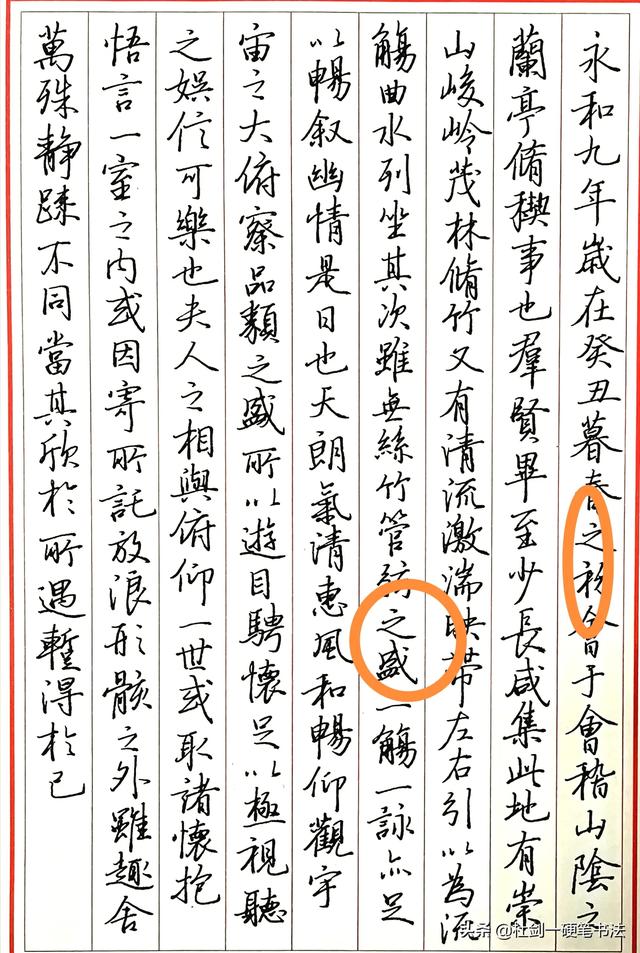 永和九年歲在癸丑暮春之初會于會稽山陰之
蘭亭脩稧事也羣賢畢至少長咸集此地有崇
山峻岭茂林脩竹又有清流激湍映帶左右引以為流
觴曲水列坐其次雖無絲竹管弦之盛一觴一詠亦足
以暢叙幽情是日也天朗氣清惠風和暢仰觀宇
宙之大俯察品類之盛所以遊目騁懷足以極視聽
之娛信可樂也夫人之相與俯仰一世或取諸懷抱
悟言一室之內或因寄所託放浪形骸之外雖趣舍
萬殊静躁不同當其欣於所遇蹔得於己
头条 @杜剑一硬笔书法